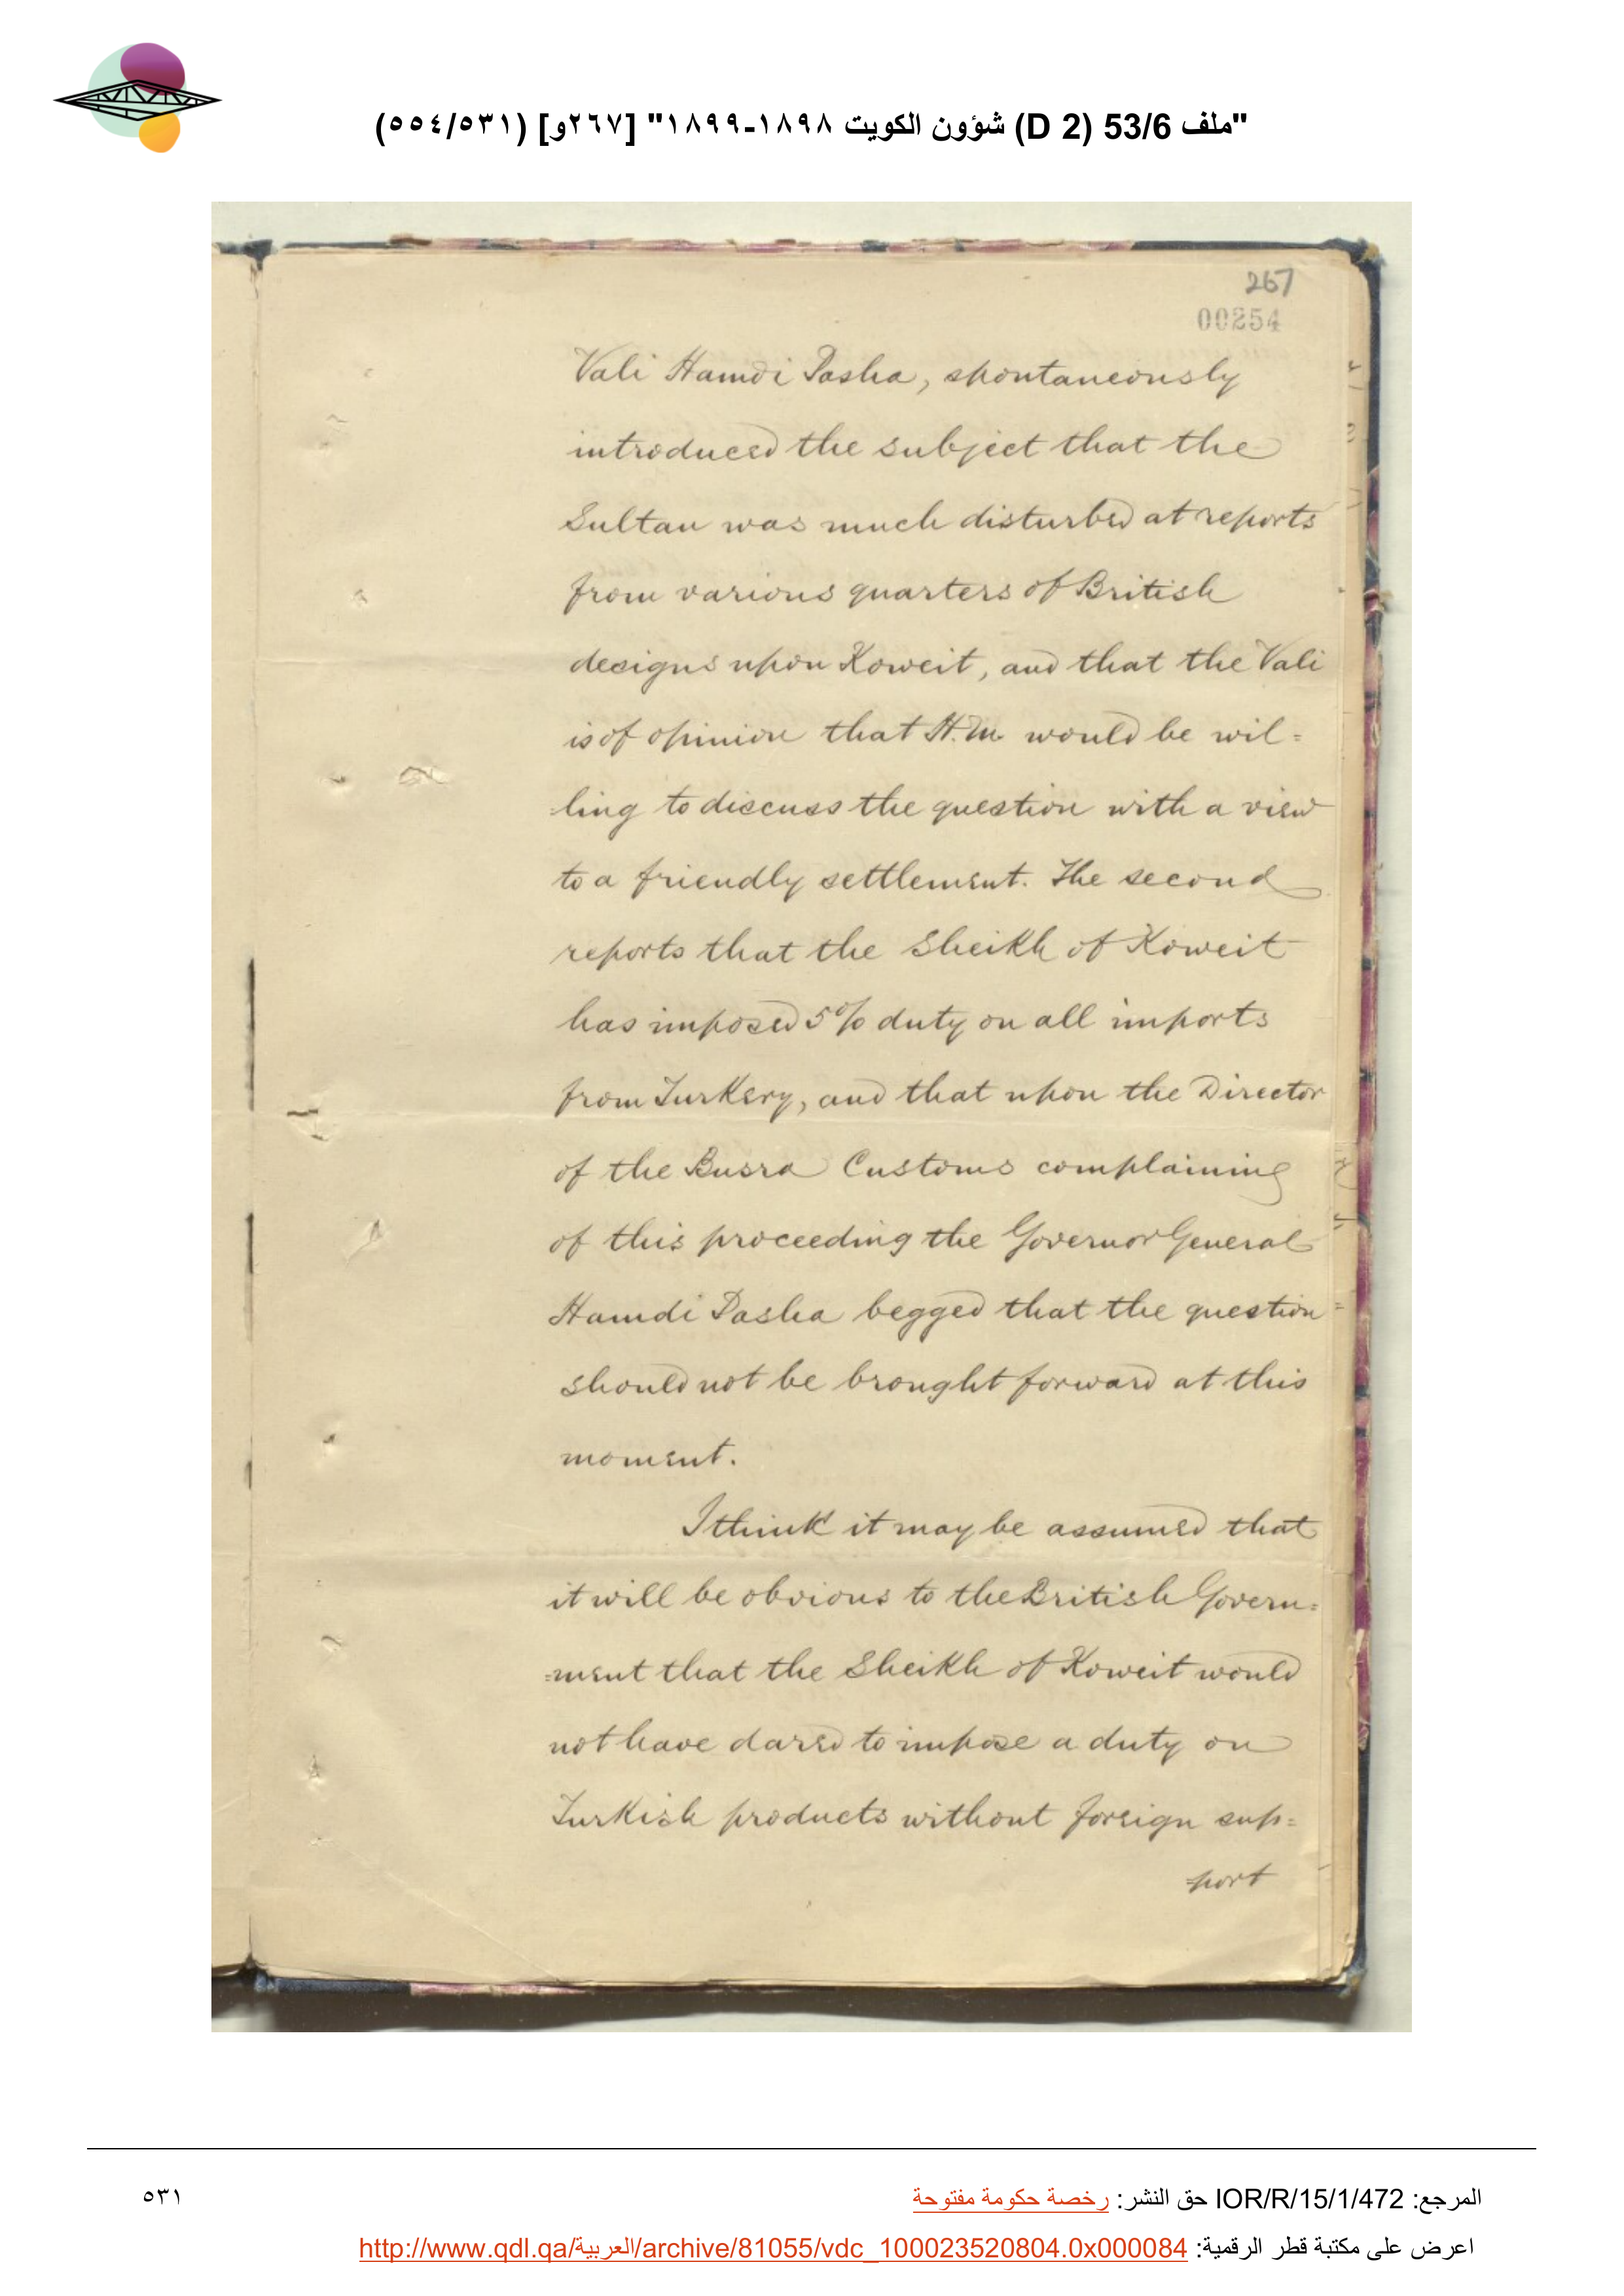 "ملف 53/6 (D 2) شؤون الكويت ١٨٩٨-١٨٩٩" [٢٦٧و] (٥٥٤/٥٣١)
267
00254
Vali Hamdi Pasha, spontaneously
introduced the subject that the
Sultan was much disturbed at reports
from various quarters of British
designs upon Koweit, and that the Vali
is of opinion that H.M. would be wil=
ling to discuss the question with a view
to a friendly settlement. The second
reports that the Sheikh of Koweit
has imposed 5% duty on all imports
from Turkery, and that upon the Director
of the Busra Customs complaining
of this proceeding the Governor General
Hamdi Pasha begged that the question
should not be brought forward at this
moment.
I think it may be assumed that
it will be obvious to the British Govern=
=ment that the Sheikh of Koweit would
not have dared to impose a duty on
Turkish products without foreign sup=
port
المرجع: IOR/R/15/1/472 حق النشر: رخصة حكومة مفتوحة
٥٣١
اعرض على مكتبة قطر الرقمية: http://www.qdl.qa/العربية/archive/81055/vdc_100023520804.0x000084